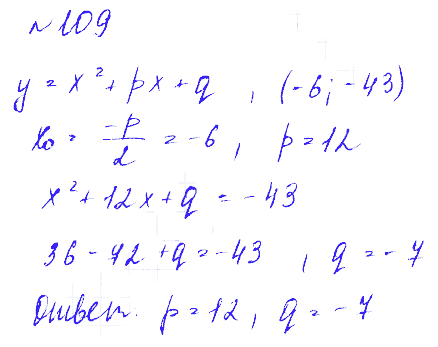 №109
y = x² + px + q , (-6; -43)
x₀ = -p/2 = -6, p = 12
x² + 12x + q = -43
36 - 72 + q = -43 , q = -7
Ответ. p = 12, q = -7